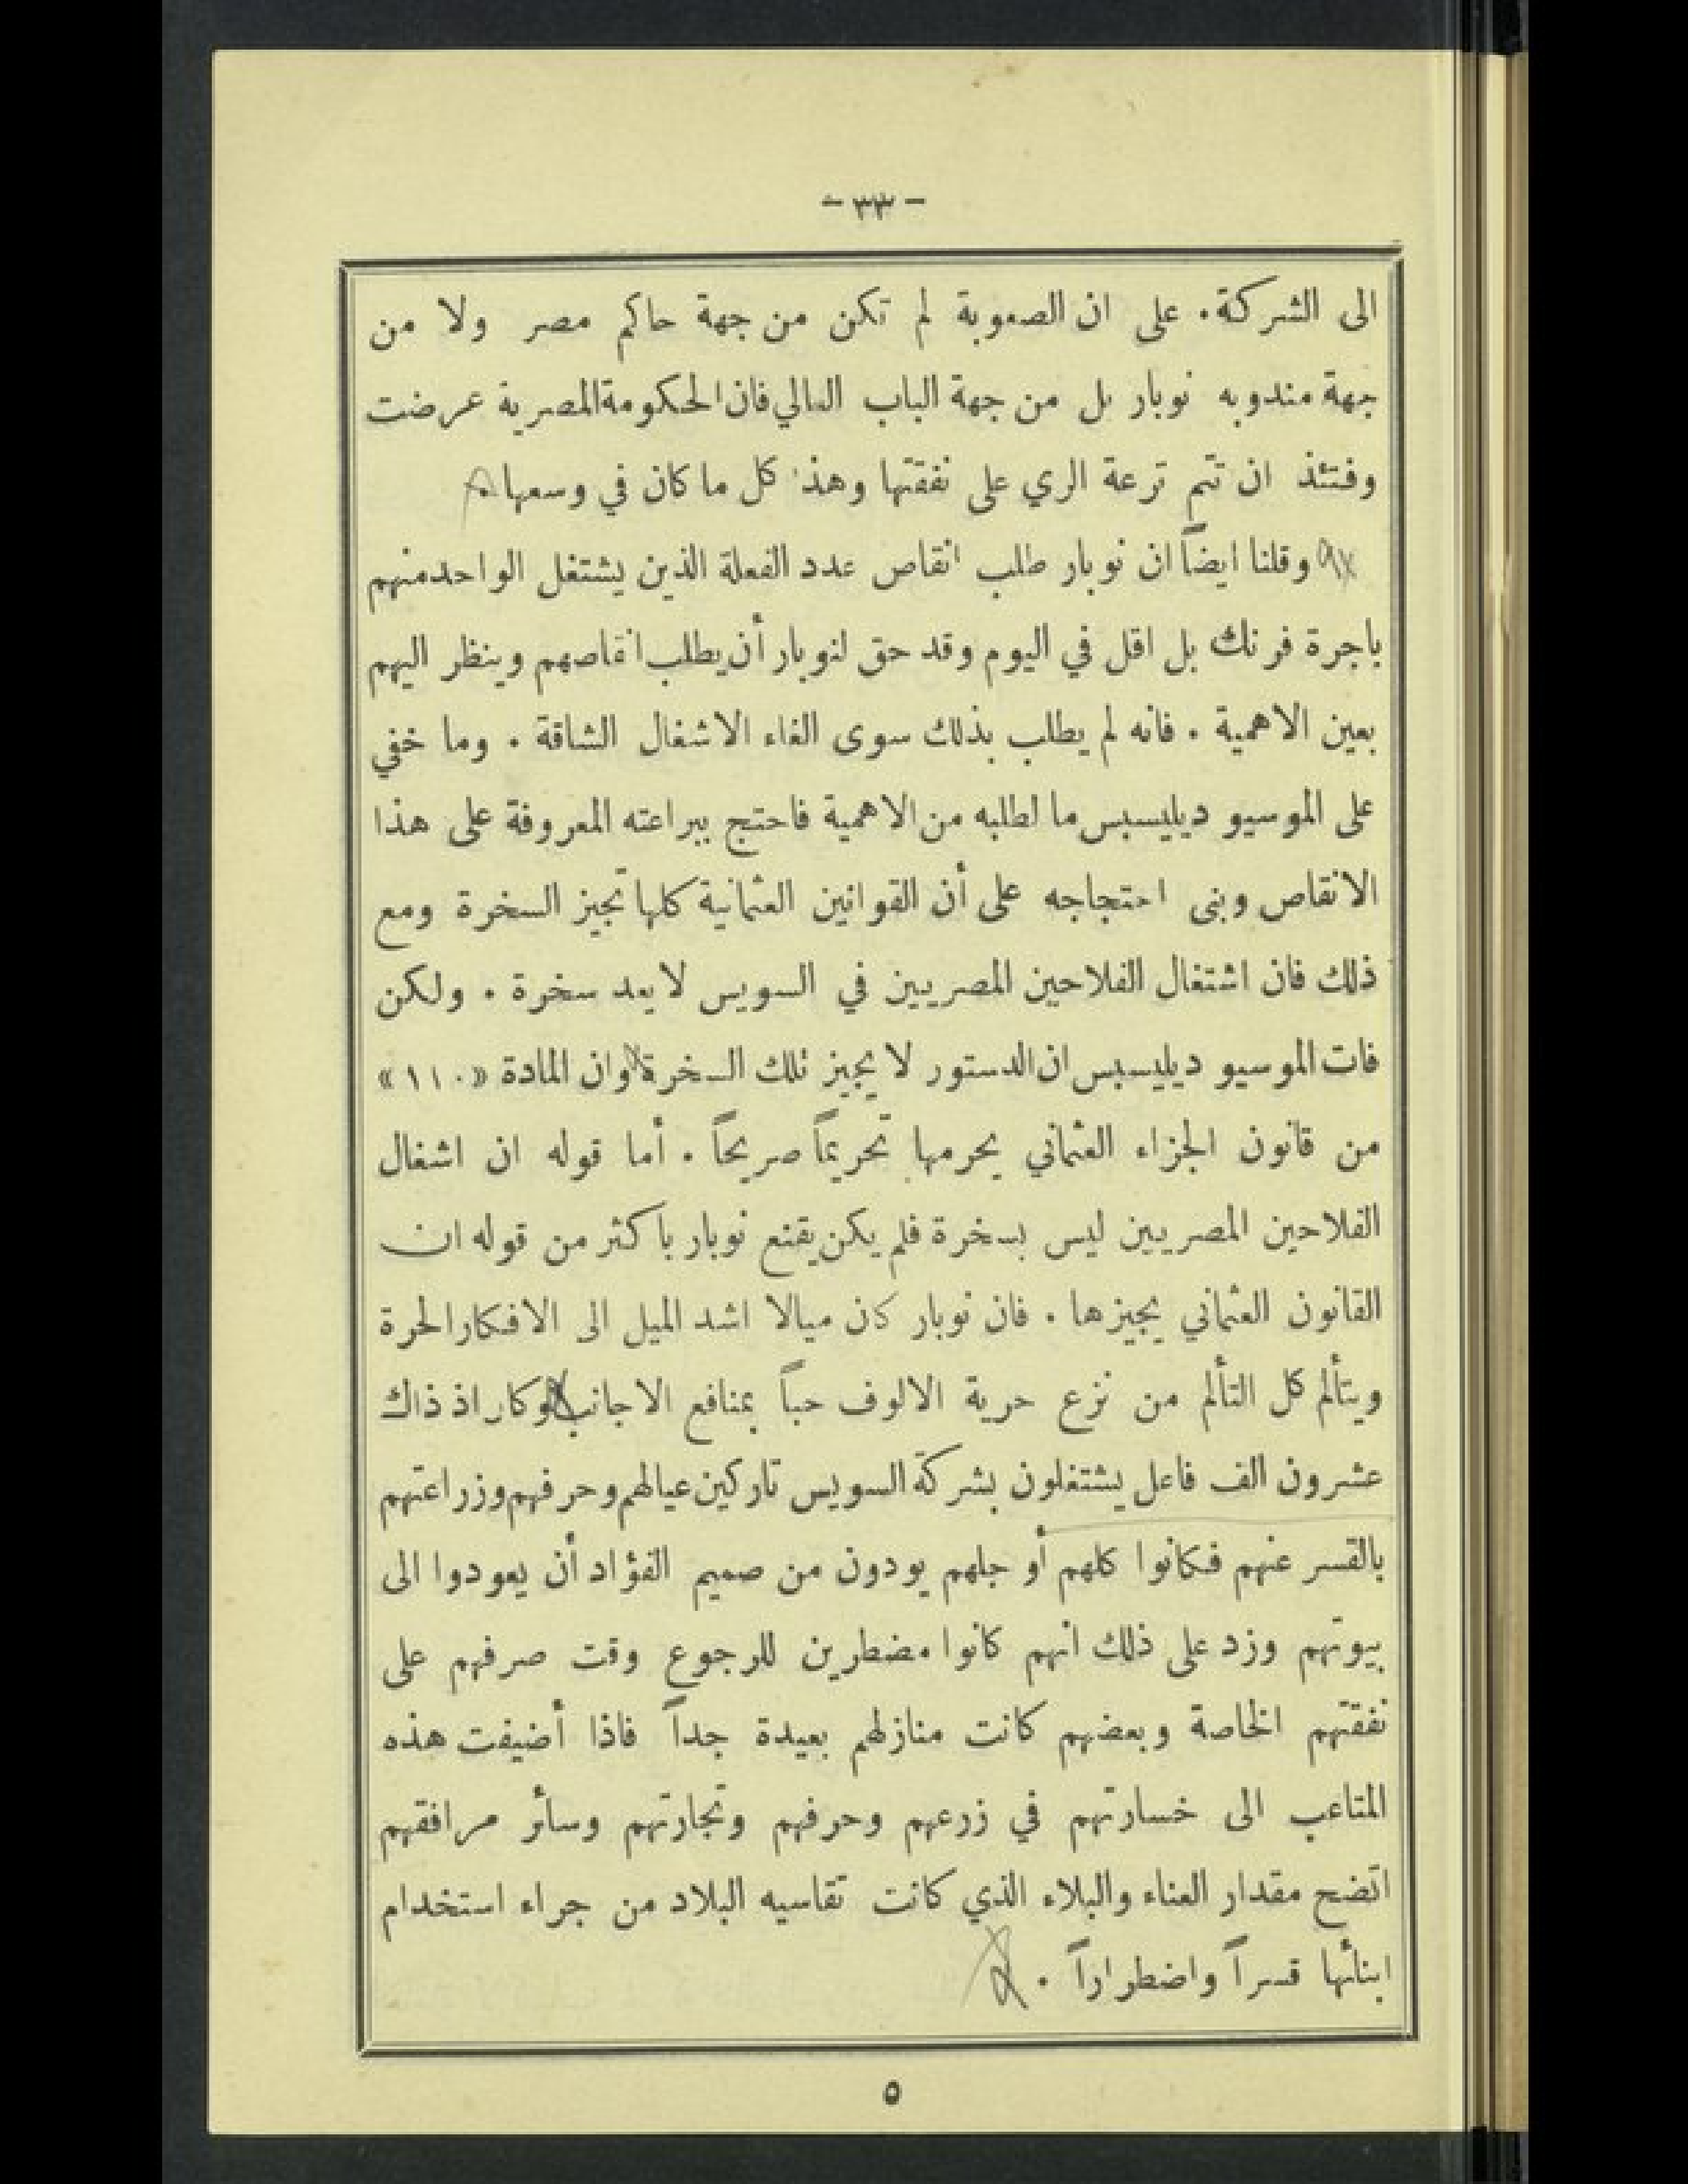 - ٣٣ -
الى الشركة. على ان الصعوبة لم تكن من جهة حاكم مصر ولا من
جهة مندوبه نوبار بل من جهة الباب العالي فان الحكومة المصرية عرضت
وقتئذ ان تتم ترعة الري على نفقتها وهذا كل ما كان في وسعها.
وقلنا ايضاً ان نوبار طلب انقاص عدد الفعلة الذين يشتغل الواحد منهم
باجرة فرنك بل اقل في اليوم وقد حق لنوبار أن يطلب انقاصهم وينظر اليهم
بعين الاهمية . فانه لم يطلب بذلك سوى الغاء الاشغال الشاقة . وما خفي
على الموسيو ديليسبس ما لطلبه من الاهمية فاحتج ببراعته المعروفة على هذا
الانقاص وبنى احتجاجه على أن القوانين العثمانية كلها تجيز السخرة ومع
ذلك فان اشتغال الفلاحين المصريين في السويس لا يعد سخرة . ولكن
فات الموسيو ديليسبس ان الدستور لا يجيز تلك السخرة وان المادة «١١٠»
من قانون الجزاء العثماني يحرمها تحريماً صريحاً . أما قوله ان اشغال
الفلاحين المصريين ليس بسخرة فلم يكن يقنع نوبار باكثر من قوله ان
القانون العثماني يجيزها . فان نوبار كان ميالا اشد الميل الى الافكار الحرة
ويتألم كل التألم من نزع حرية الالوف حباً بمنافع الاجانب وكان اذ ذاك
عشرون الف فاعل يشتغلون بشركة السويس تاركين عيالهم وحرفهم وزراعتهم
بالقسر عنهم فكانوا كلهم أو جلهم يودون من صميم الفؤاد أن يعودوا الى
بيوتهم وزد على ذلك انهم كانوا مضطرين للرجوع وقت صرفهم على
نفقتهم الخاصة وبعضهم كانت منازلهم بعيدة جداً فاذا أضيفت هذه
المتاعب الى خسارتهم في زرعهم وحرفهم وتجارتهم وسائر مرافقهم
اتضح مقدار العناء والبلاء الذي كانت تقاسيه البلاد من جراء استخدام
ابنائها قسراً واضطراراً .
٥